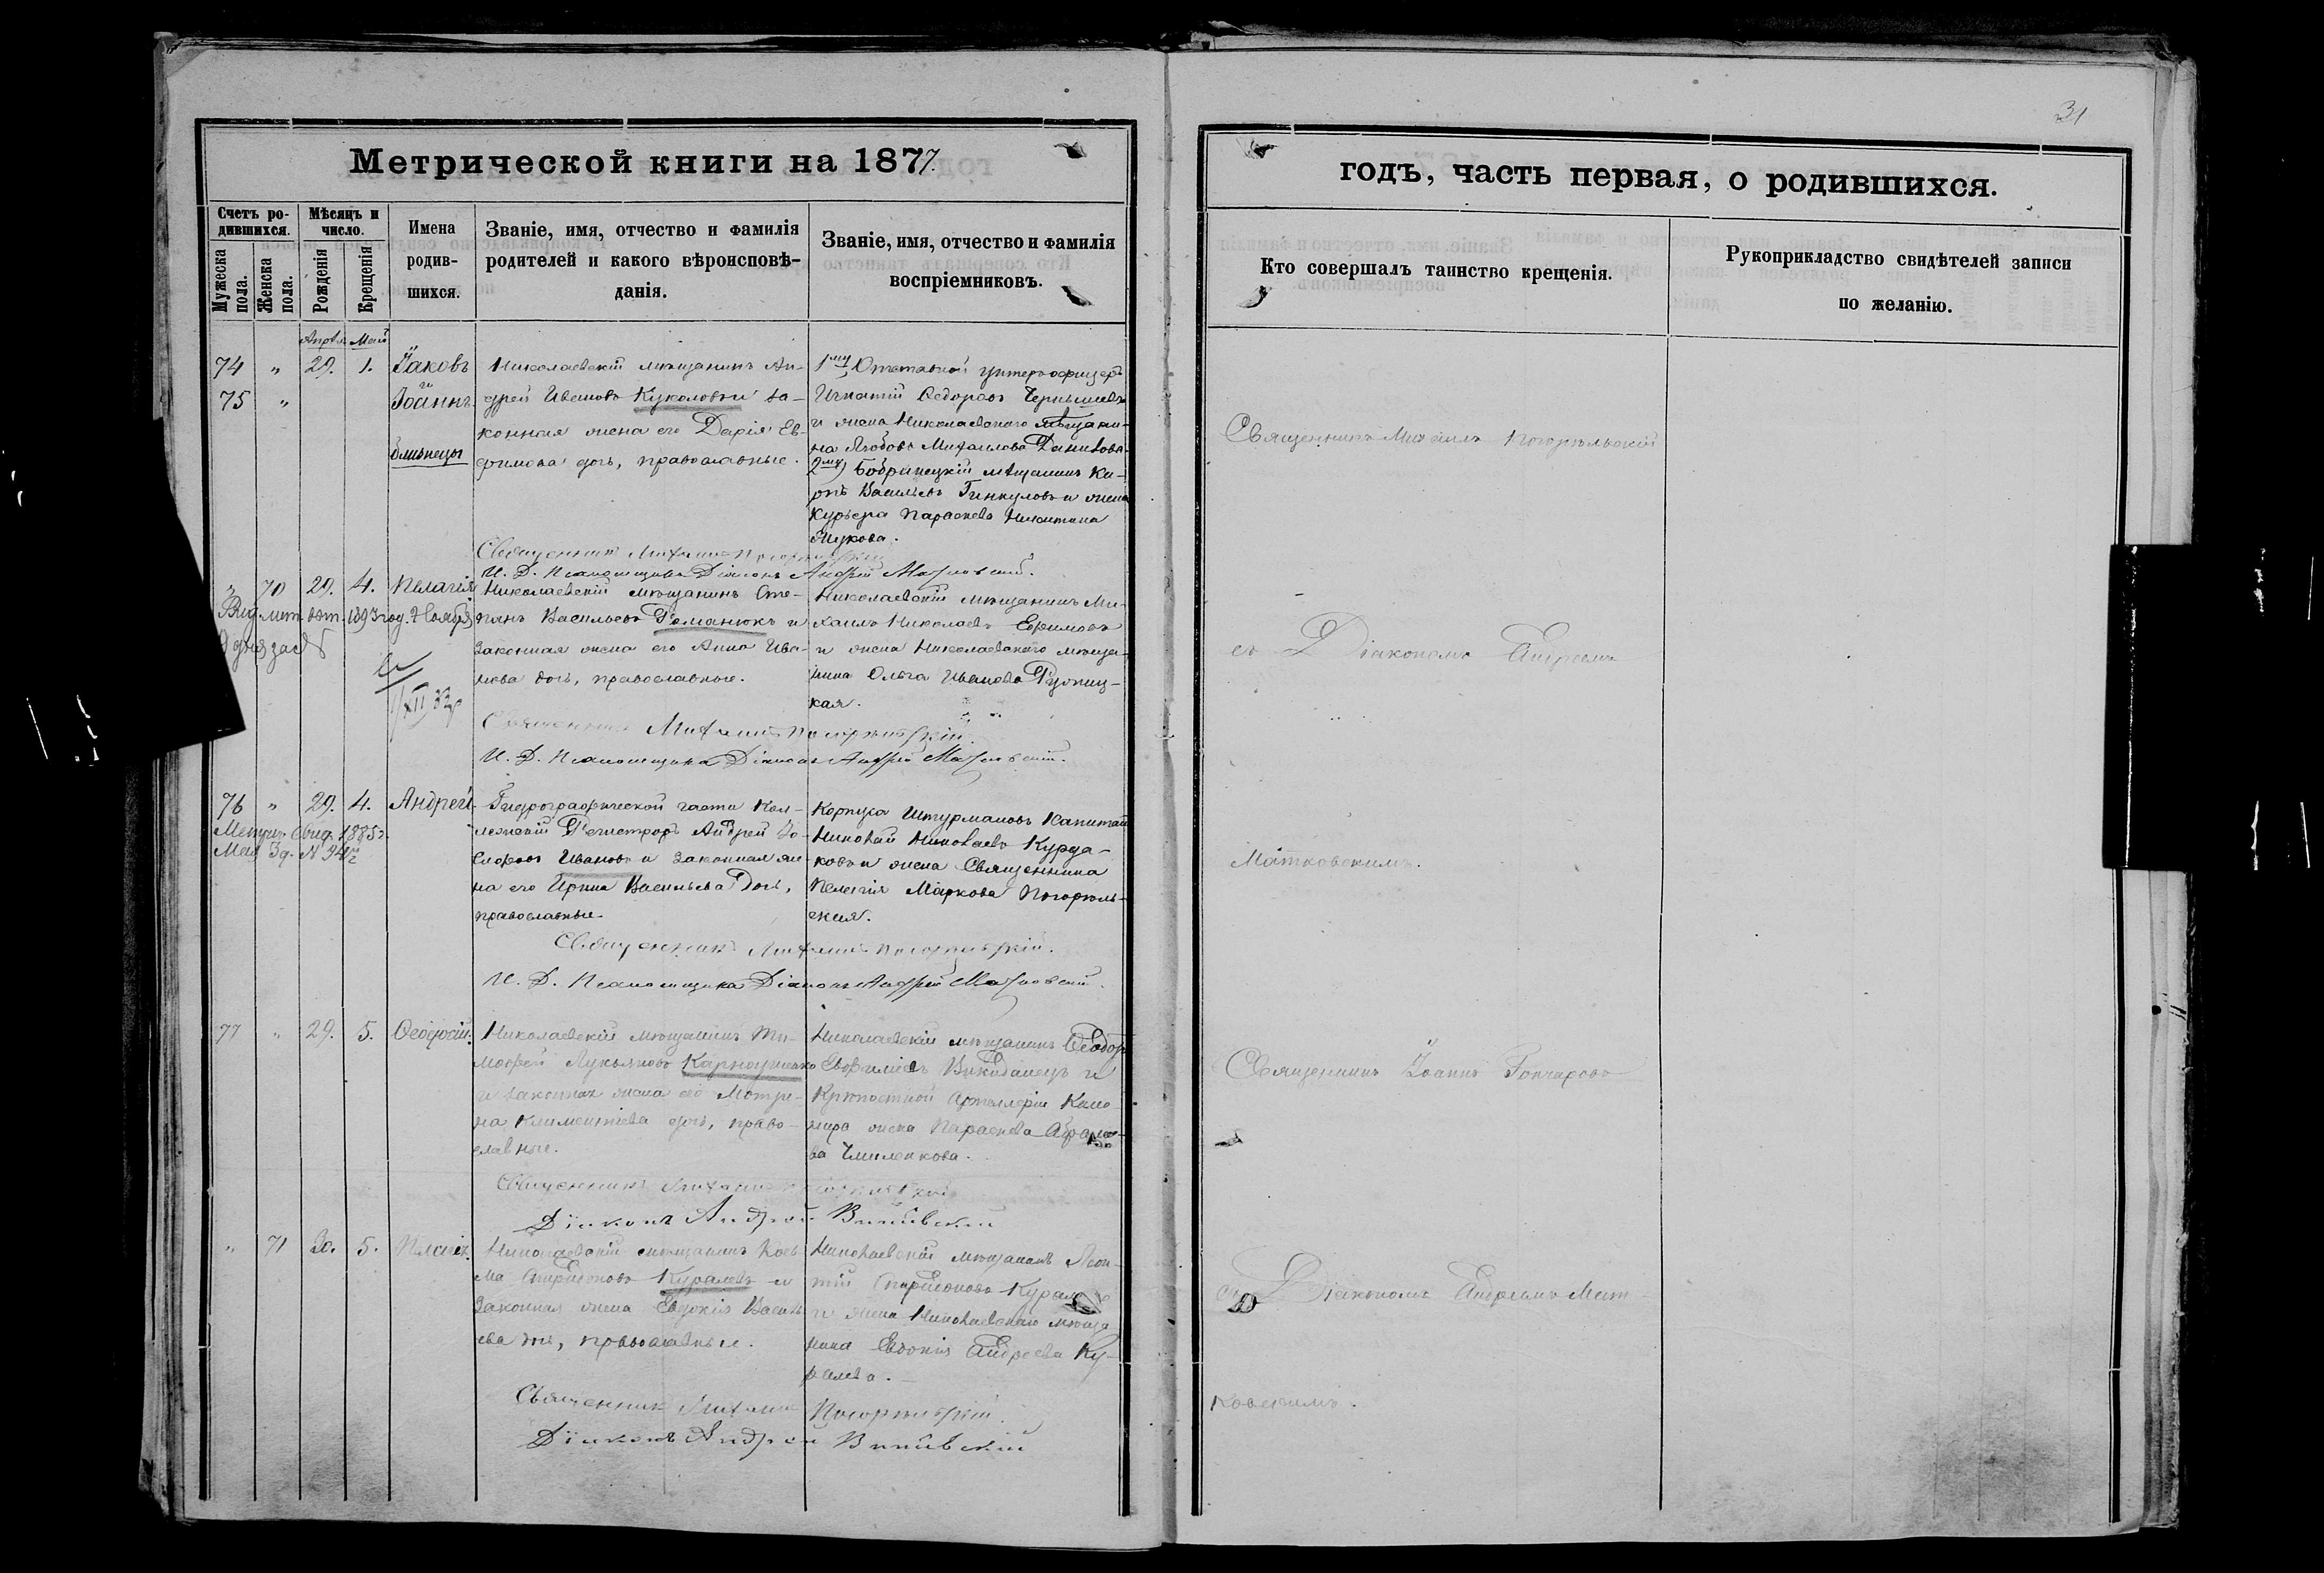 31
Метрической книги на 1877.
годъ, часть первая, о родившихся.
Счетъ ро-
дившихся.
Мѣсяцъ и
число.
Мужеска
пола.
Женска
пола.
Рожденія
Крещенія
Имена
родив-
шихся.
Званіе, имя, отчество и фамилія
родителей и какого вѣроисповѣ-
данія.
Званіе, имя, отчество и фамилія
воспріемниковъ.
Кто совершалъ таинство крещенія.
Рукоприкладство свидѣтелей записи
по желанію.
Май
74 " 29. 1. Іаковъ
и
75 " Іоаннъ.
близнецы
Николаевскій мѣщанинъ Ан-
дрей Ивановъ Куколовъ и за-
конная жена его Дарія Ев-
фимова дочь, православные.
1му) Отставной унтеръ-офицеръ
Игнатій Ѳедоровъ Чернышевъ
и жена Николаевскаго мѣщани-
на Любовь Михаилова Данилова
2му) Бобринецкій мѣщанинъ Ки-
Васильевъ и жена
Курьера Параскева Никитина
Священникъ Михаилъ Погорѣльскій
Священникъ Михаилъ Погорѣльскій
И. Д. Псаломщика Діаконъ Андрей
" 70 29. 4. Пелагія
1893 год. Ноября
9 дня за №
Николаевскій мѣщанинъ Сте-
панъ Васильевъ Романюкъ и
законная жена его Анна Ива-
нова дочь, православные.
Николаевскій мѣщанинъ Ми-
хаилъ Николаевъ Ефимовъ
и жена Николаевскаго мѣща-
нина Ольга Иванова
кая.
съ Діакономъ Андреемъ
Священникъ Михаилъ Погорѣльскій.
И. Д. Псаломщика Діаконъ Андрей
76 " 29. 4. Андрей
Метрич. свид. 1885 г.
Мая 3 д. № 94
Гидрографической части Кол-
лежскій Регистраторъ Андрей
Ивановъ и законная же-
на его Ирина Васильева дочь,
православные.
Корпуса Штурмановъ Капитанъ
Николай Николаевъ Курда-
ковъ и жена Священника
Пелагія Маркова Погорѣль-
ская.
Матковскимъ.
Священникъ Михаилъ Погорѣльскій.
И. Д. Псаломщика Діаконъ Андрей
77 " 29. 5. Ѳеодосій.
Николаевскій мѣщанинъ Ти-
мофей Лукьяновъ Карнаушенко
и законная жена его Матре-
на Климентіева дочь, право-
славные.
Николаевскій мѣщанинъ Ѳеодоръ
Евфиміевъ и
Крѣпостной Артиллеріи Кано-
нира жена Параскева
ва
Священникъ Іоаннъ Гончаровъ
Священникъ Михаилъ
Діаконъ Андрей
" 71 30. 5. Пелагія.
Николаевскій мѣщанинъ Козь-
ма Спиридоновъ Куралевъ и
законная жена Евдокія Василь-
ева дочь, православные.
Николаевскій мѣщанинъ Леон-
тій Спиридоновъ
и жена Николаевскаго мѣща
нина Евдокія Андреева Ку-
ралева.
съ Діакономъ Андреемъ Мат-
ковскимъ.
Священникъ Михаилъ Погорѣльскій.
Діаконъ Андрей